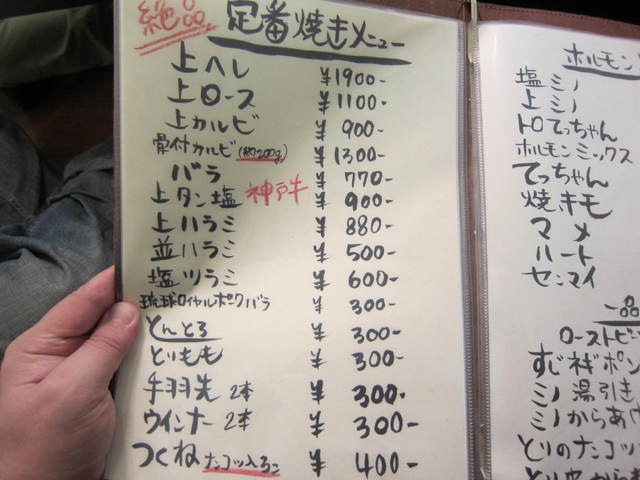 絶品 定番焼きメニュー
上ヘレ ¥1900-
上ロース ¥1100-
上カルビ ¥900-
骨付カルビ(約200g) ¥1300-
バラ ¥770-
上タン塩 神戸牛 ¥900-
上ハラミ ¥880-
並ハラミ ¥500-
塩ツラミ ¥600-
琉球ロイヤルポークバラ ¥300-
とんとろ ¥300-
とりもも ¥300-
手羽先 2本 ¥300-
ウインナー 2本 ¥300-
つくね ナンコツ入ろこ ¥400-
ホルモン
塩ミノ
上ミノ
トロてっちゃん
ホルモンミックス
てっちゃん
焼きモ
マメ
ハート
センマイ
一品
ローストビ
すじネギポン
ミノ湯引き
ミノからあげ
とりのナンコツ